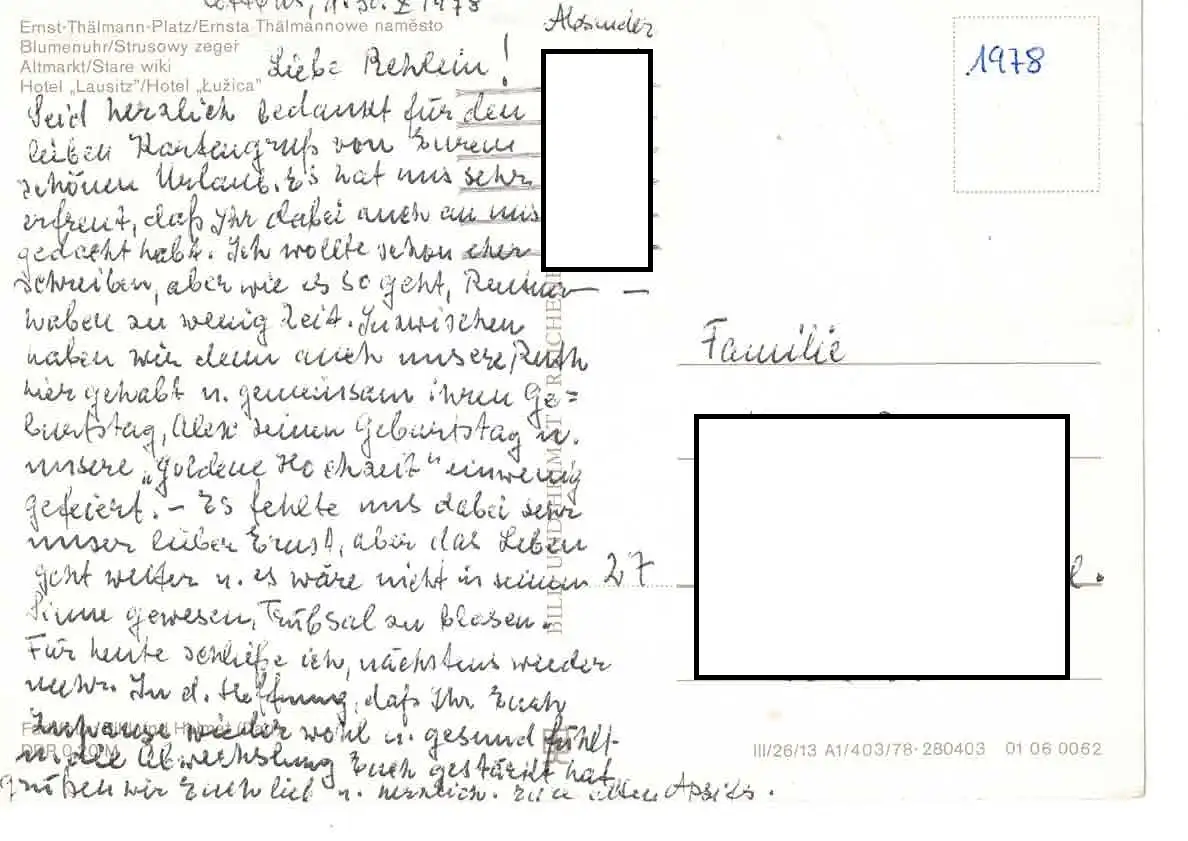 Cottbus, 1978
Alexander
Ernst-Thälmann-Platz/Ernsta Thälmannowe naměsto
Blumenuhr/Strusowy zeger
Altmarkt/Stare wiki
Hotel „Lausitz"/Hotel „Łužica"
1978
Liebe Rehlein!
Seid herzlich bedankt für den
lieben Kartengruß von Eurem
schönen Urlaub. Es hat uns sehr
erfreut, daß Ihr dabei auch an uns
gedacht habt. Ich wollte schon eher
schreiben, aber wie es so geht, Rentner —
haben zu wenig Zeit. Inzwischen
haben wir denn auch unsere Ruth
hier gehabt u. gemeinsam ihren Ge=
burtstag, Alex seinen Geburtstag u.
unsere „goldene Hochzeit" einwenig
gefeiert. – Es fehlte uns dabei sehr
unser lieber Ernst, aber das Leben
geht weiter u. es wäre nicht in seinem
Sinne gewesen, Trübsal zu blasen.
Für heute schließe ich, nächstens wieder
mehr. In d. Hoffnung, daß Ihr Euch
Zuhause wieder wohl u. gesund fühlt
u. die Abwechslung Euch gestärkt hat,
grüßen wir Euch lieb u. herzlich. alten
Familie
27
BILD UND HEIMAT REICHEN
DDR 0,20 M
III/26/13 A1/403/78-280403 01 06 0062